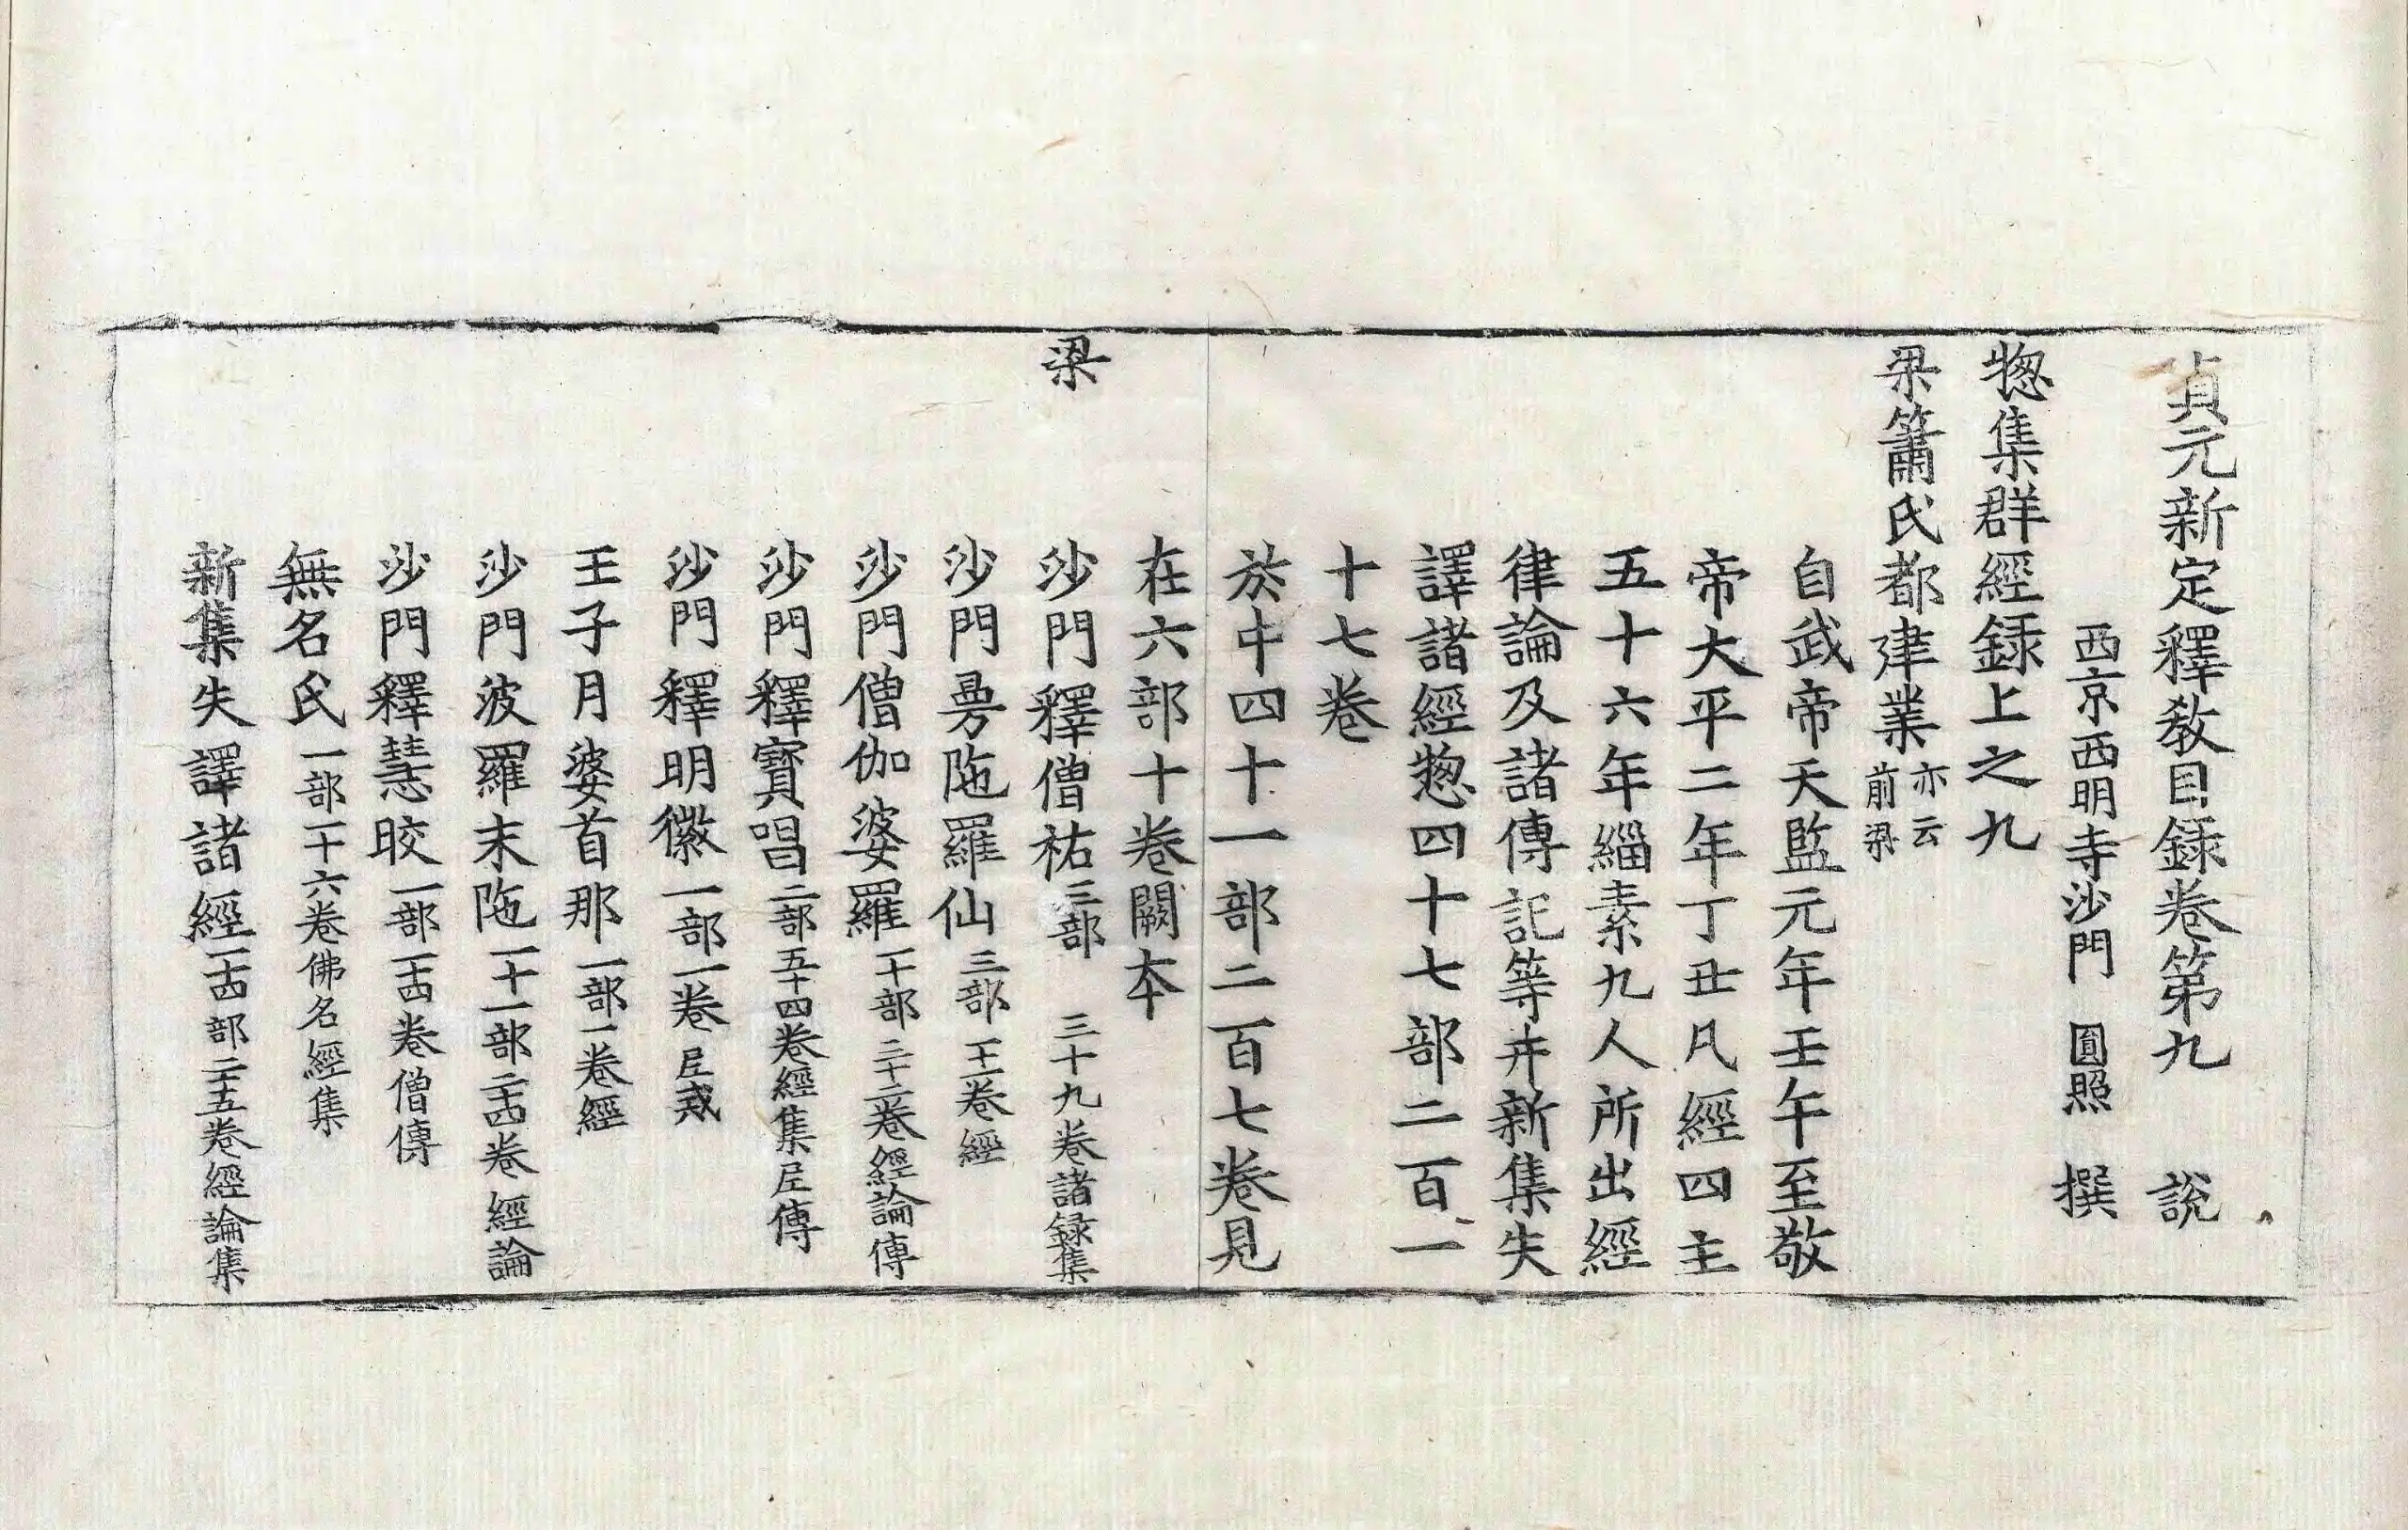 貞元新定釋教目録卷第九 說
西京西明寺沙門 圓照 撰
惣集群經録上之九
梁簫氏都建業亦云前梁
自武帝天監元年壬午至敬
帝大平二年丁丑凡經四主
五十六年緇素九人所出經
律論及諸傳記等并新集失
譯諸經惣四十七部二百一
十七卷
於中四十一部二百七卷見
在六部十卷闕本
梁 沙門釋僧祐三部 三十九卷諸録集
沙門曼陁羅仙三部 王卷經
沙門僧伽婆羅一十部 二十二卷經論傳
沙門釋寶唱二部五十四卷經集尼傳
沙門釋明徽一部一卷尼戒
王子月婆首那一部一卷經
沙門波羅末陁一十一部二十四卷經論
沙門釋慧皎一部一十四卷僧傳
無名氏一部一十六卷佛名經集
新集失譯諸經一十四部二十五卷經論集